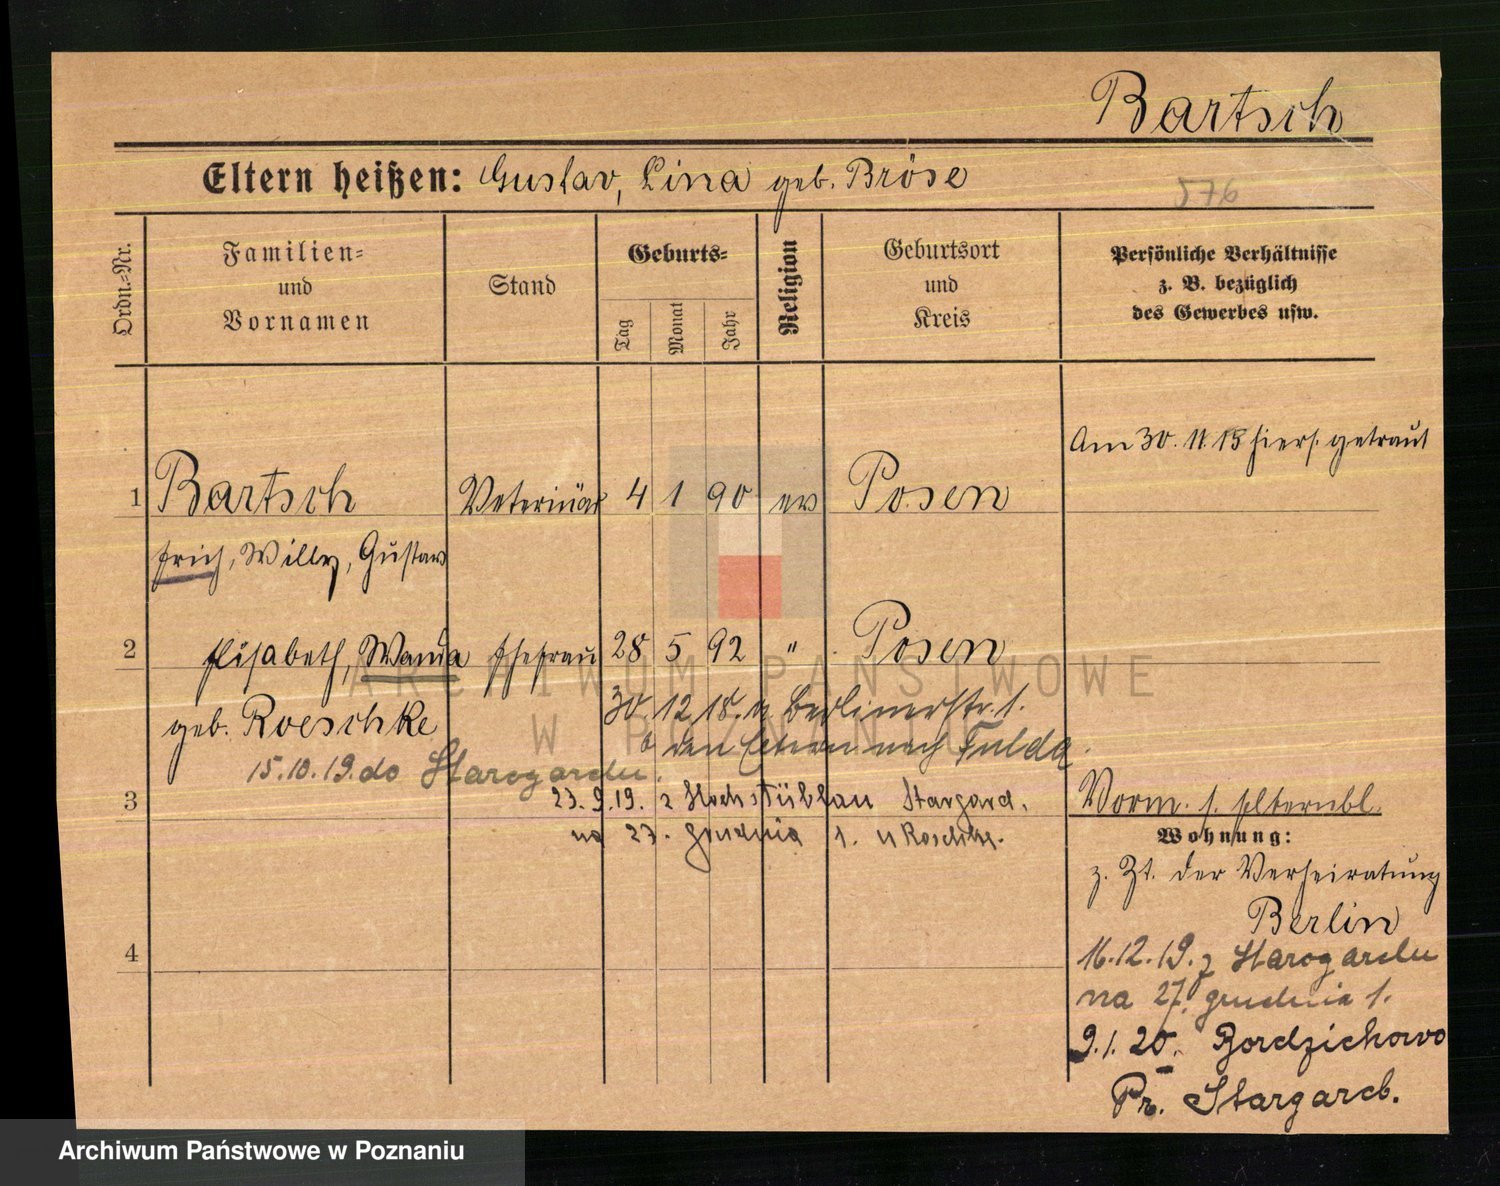 Bartsch
Eltern heißen: Gustav, Lina geb. Bröse
576
Ordn.-Nr.
Familien-
und
Vornamen
Stand
Geburts-
Tag
Monat
Jahr
Religion
Geburtsort
und
Kreis
Persönliche Verhältnisse
z. B. bezüglich
des Gewerbes usw.
Am 30. 11. 18 hiers. getraut
1 Bartsch Veterinär 4 1 90 ev Posen
Erich, Willy, Gustav
2 Elisabeth, Wanda Ehefrau 28 5 92 " Posen
geb. Roeschke 30. 12. 18. Berlinerstr. 1.
den Eltern nach Fulda.
15.10.19. do Starogardu.
3 23.9.19. z Hochstüblau Stargard.
na 27. grudnia 1. u Roschke.
Vorm. s. Elternbl.
Wohnung:
z. Zt. der Verheiratung
Berlin
4
16.12.19. z Starogardu
na 27. grudnia 1.
9.1.20. Bordzichowo
Pr. Stargard.
ARCHIWUM PAŃSTWOWE
W POZNANIU
Archiwum Państwowe w Poznaniu